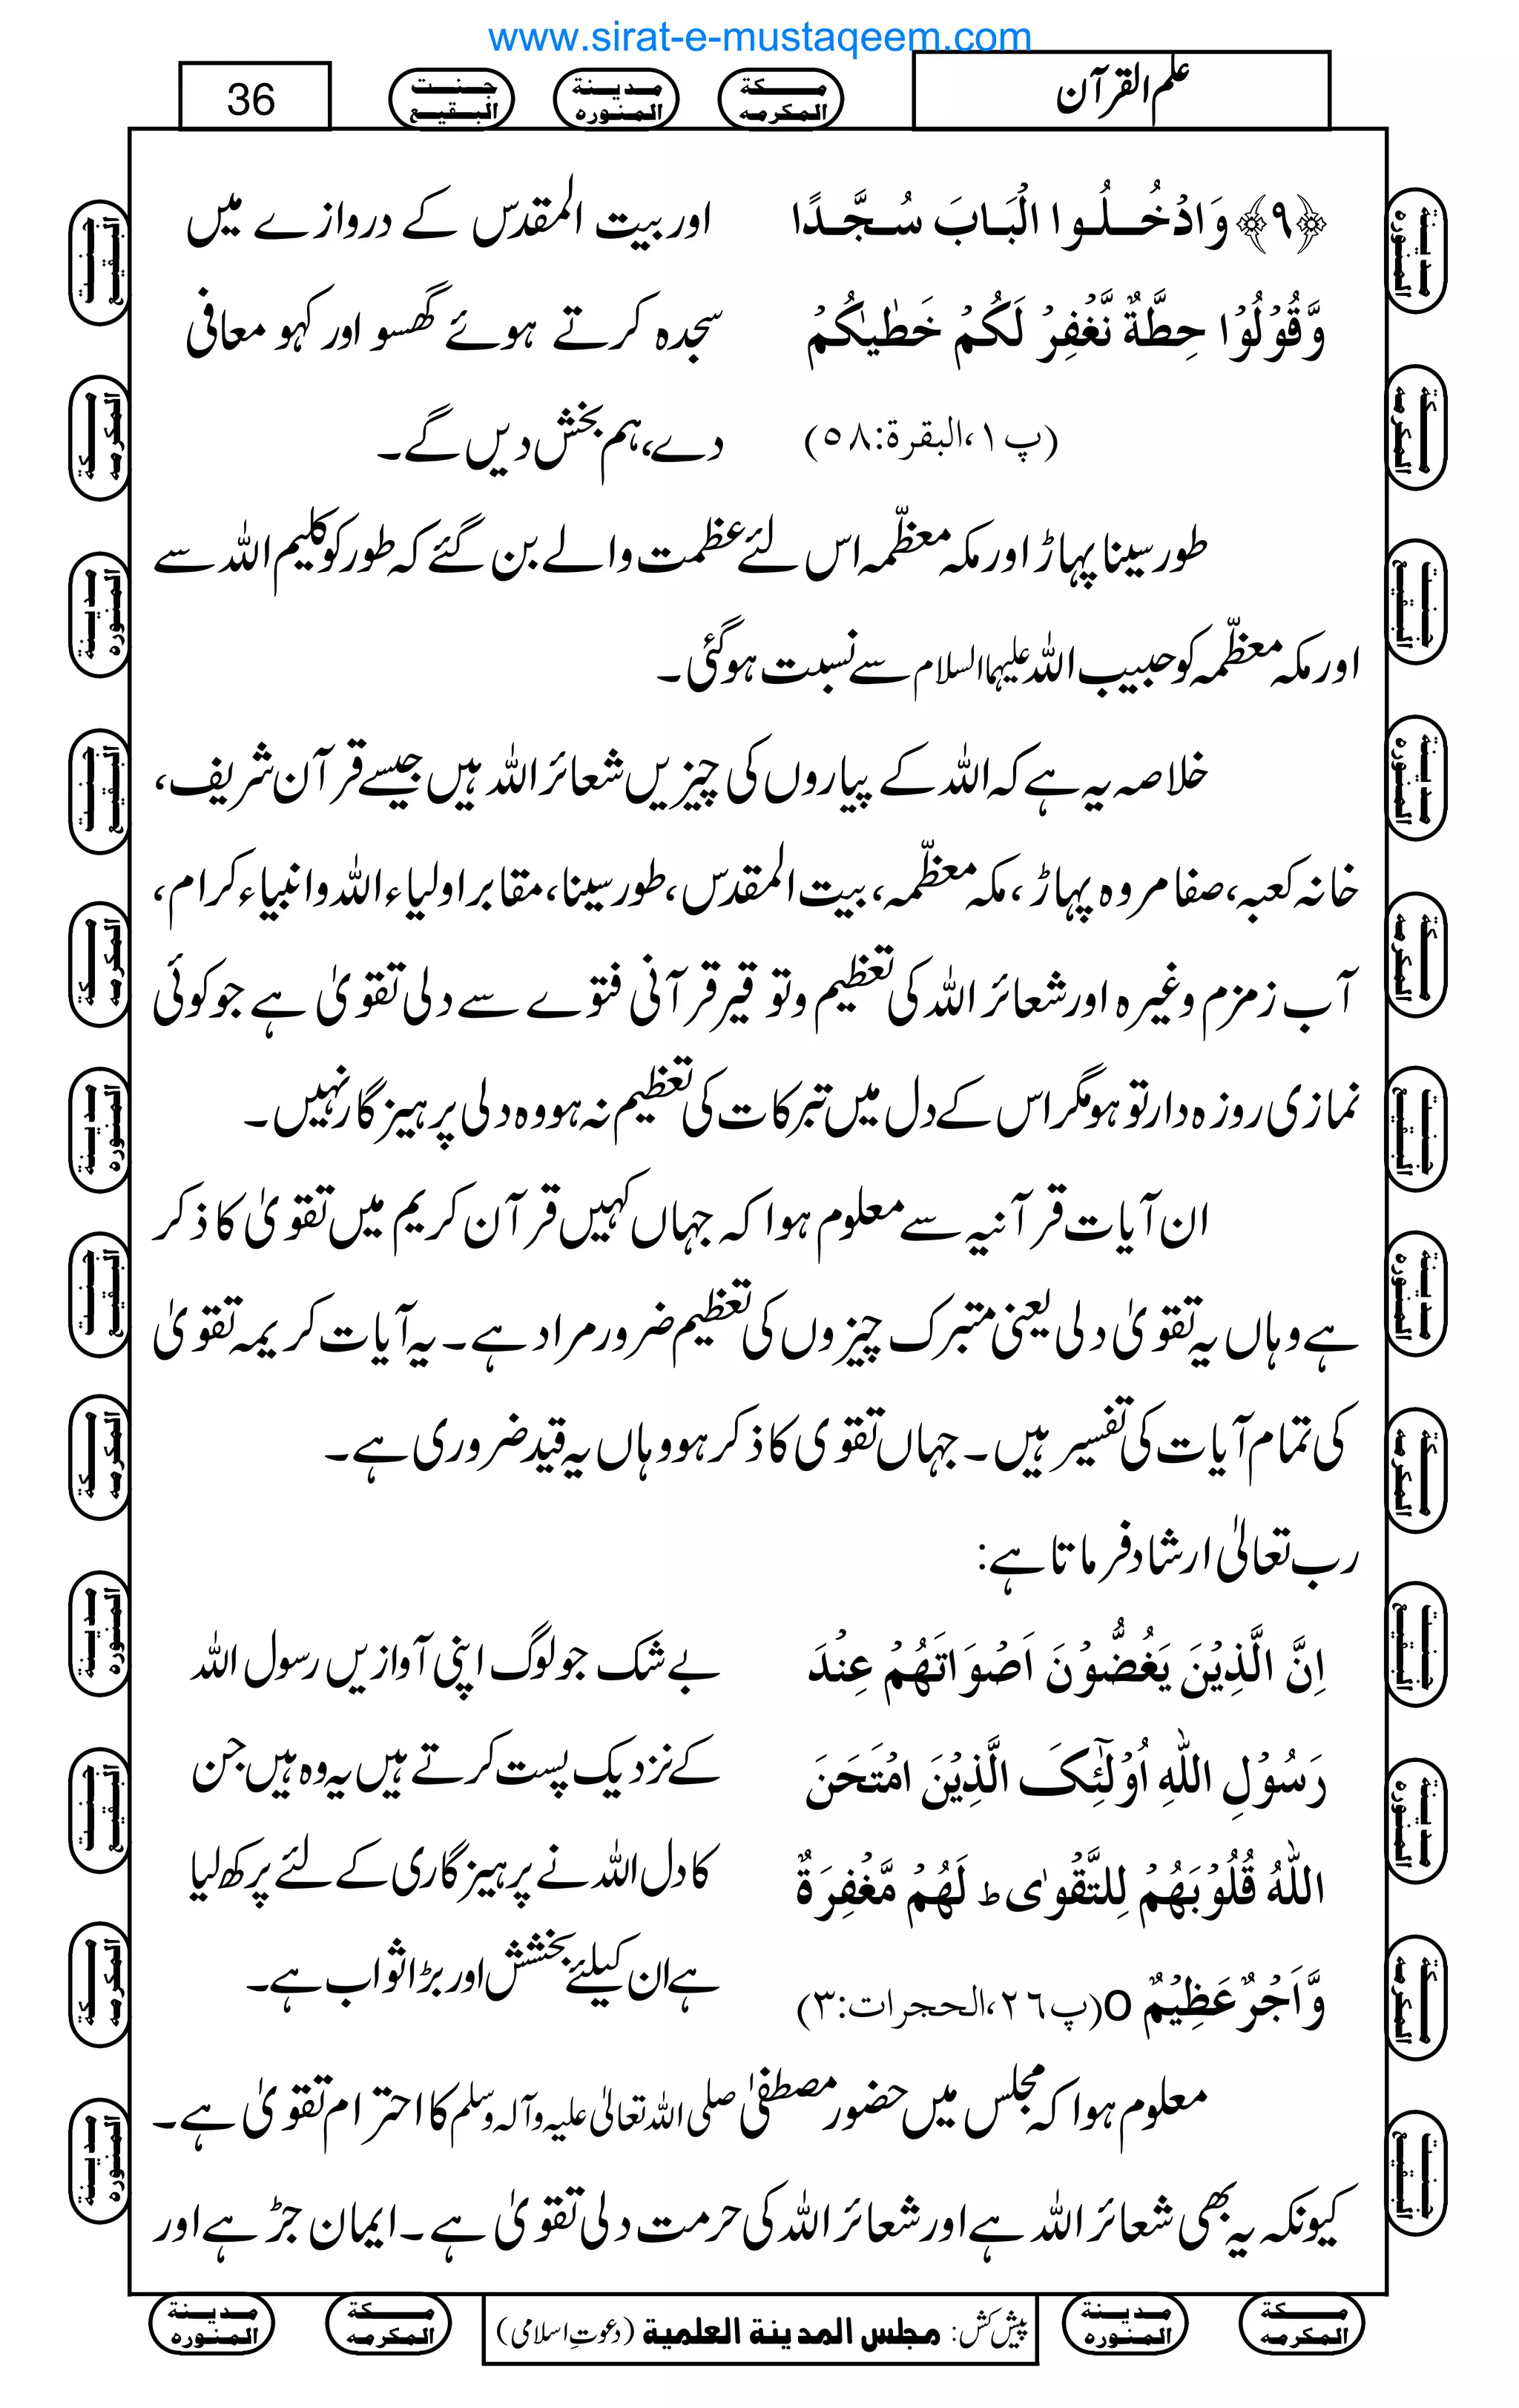 www.sirat-e-mustaqeem.com
علم القرآن
مكة المكرمه
مدينة المنوره
جنت البقيع
36
﴿٩﴾ وَادْخُلُوا الْبَابَ سُجَّدًا
وَّقُوْلُوْا حِطَّةٌ نَّغْفِرْ لَكُمْ خَطٰيٰكُمْ
(پ١،البقرة:٥٨)
اور بیت المقدس کے دروازے میں
سجدہ کرتے ہوئے گھسو اور کہو معافی
دے، ہم بخش دیں گے۔
طور سینا پہاڑ اور مکہ معظّمہ اس لئے عظمت والے بن گئے کہ طور کو کلیم اللہ سے
اور مکہ معظّمہ کو حبیب اللہ علیہما السلام سے نسبت ہوگئی۔
خلاصہ یہ ہے کہ اللہ کے پیاروں کی چیزیں شعائر اللہ ہیں جیسے قرآن شریف،
خانہ کعبہ، صفا مروہ پہاڑ، مکہ معظّمہ، بیت المقدس، طور سینا، مقابر اولیاء اللہ وانبیاء کرام،
آب زمزم وغیرہ اور شعائر اللہ کی تعظیم وتوقیر قرآنی فتوے سے دلی تقویٰ ہے جو کوئی
نمازی روزہ دار تو ہو مگر اس کے دل میں تبرکات کی تعظیم نہ ہو وہ دلی پرہیزگار نہیں۔
ان آیات قرآنیہ سے معلوم ہوا کہ جہاں کہیں قرآن کریم میں تقویٰ کا ذکر
ہے وہاں یہ تقویٰ دلی یعنی متبرک چیزوں کی تعظیم ضرور مراد ہے۔ یہ آیات کریمہ تقویٰ
کی تمام آیات کی تفسیر ہیں۔ جہاں تقوی کا ذکر ہو وہاں یہ قید ضروری ہے۔
رب تعالٰی ارشاد فرماتا ہے:
اِنَّ الَّذِيْنَ يَغُضُّوْنَ اَصْوَاتَهُمْ عِنْدَ
رَسُوْلِ اللّٰهِ اُولٰٓئِكَ الَّذِيْنَ امْتَحَنَ
اللّٰهُ قُلُوْبَهُمْ لِلتَّقْوٰى ط لَهُمْ مَّغْفِرَةٌ
وَّاَجْرٌ عَظِيْمٌ O (پ٢٦،الحجرات:٣)
بے شک جو لوگ اپنی آوازیں رسول اللہ
کے نزدیک پست کرتے ہیں یہ وہ ہیں جن
کا دل اللہ نے پرہیزگاری کے لئے پرکھ لیا
ہے ان کیلئے بخشش اور بڑا ثواب ہے۔
معلوم ہوا کہ مجلس میں حضور مصطفیٰ صلی اللہ تعالٰی علیہ وآلہ وسلم کا احترام تقویٰ ہے۔
کیونکہ یہ بھی شعائر اللہ ہے اور شعائر اللہ کی حرمت دلی تقویٰ ہے۔ ایمان جڑ ہے اور
پیش کش: مجلس المدينة العلمية (دعوتِ اسلامی)
مكة المكرمه
مدينة المنوره
مكة المكرمه
مدينة المنوره